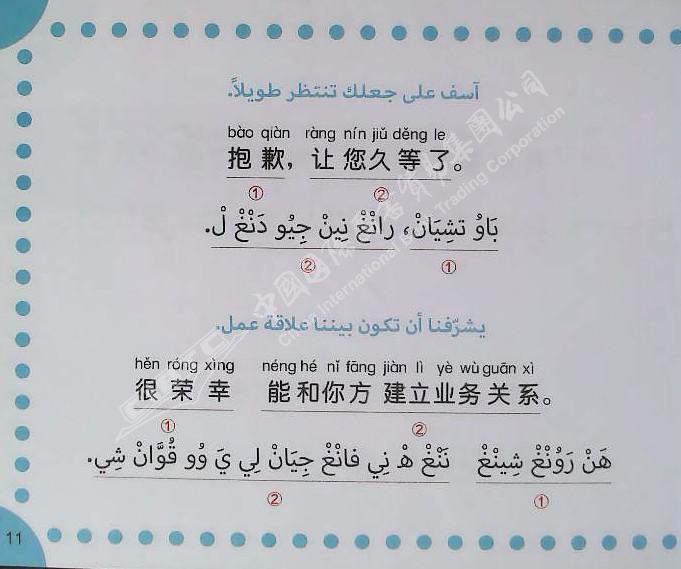 آسف على جعلك تنتظر طويلاً.
bào qiàn ràng nín jiǔ děng le
抱歉，让您久等了。
① ②
بَاوُ تشِيَانْ، رانْغْ نِينْ جِيُو دَنْغْ لْ.
① ②
يشرّفنا أن تكون بيننا علاقة عمل.
hěn róng xìng néng hé nǐ fāng jiàn lì yè wù guān xì
很荣幸 能和你方 建立业务关系。
① ②
هَنْ رَوُنْغْ شِينْغْ نَنْغْ هْ نِي فانْغْ جِيَانْ لِي يَ وُو قُوَّانْ شِي.
① ②
11